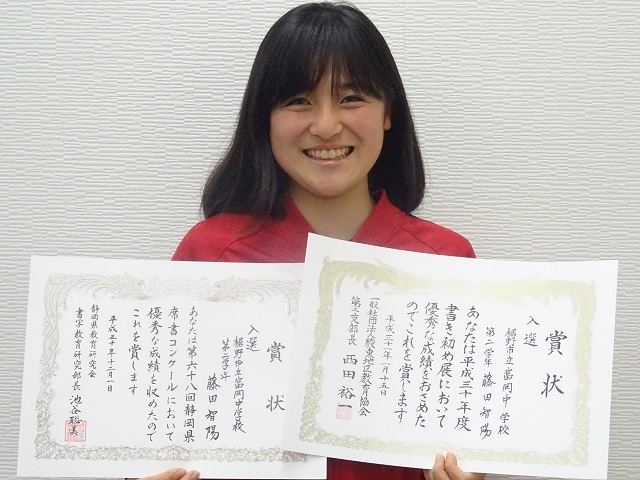 賞状
入選
裾野市立富岡中学校
第二学年
藤田智陽
あなたは第六十八回静岡県
席書コンクールにおいて
優秀な成績を収めたので
これを賞します
平成三十年十二月一日
静岡県教育研究会
書写教育研究部長 池谷聡美
賞状
入選
裾野市立富岡中学校
第二学年 藤田智陽
あなたは平成三十年度
書き初め展において
優秀な成績をおさめた
のでこれを賞します
平成三十一年二月十五日
一般社団法人駿東地区教育協会
第二支部長 西田裕一